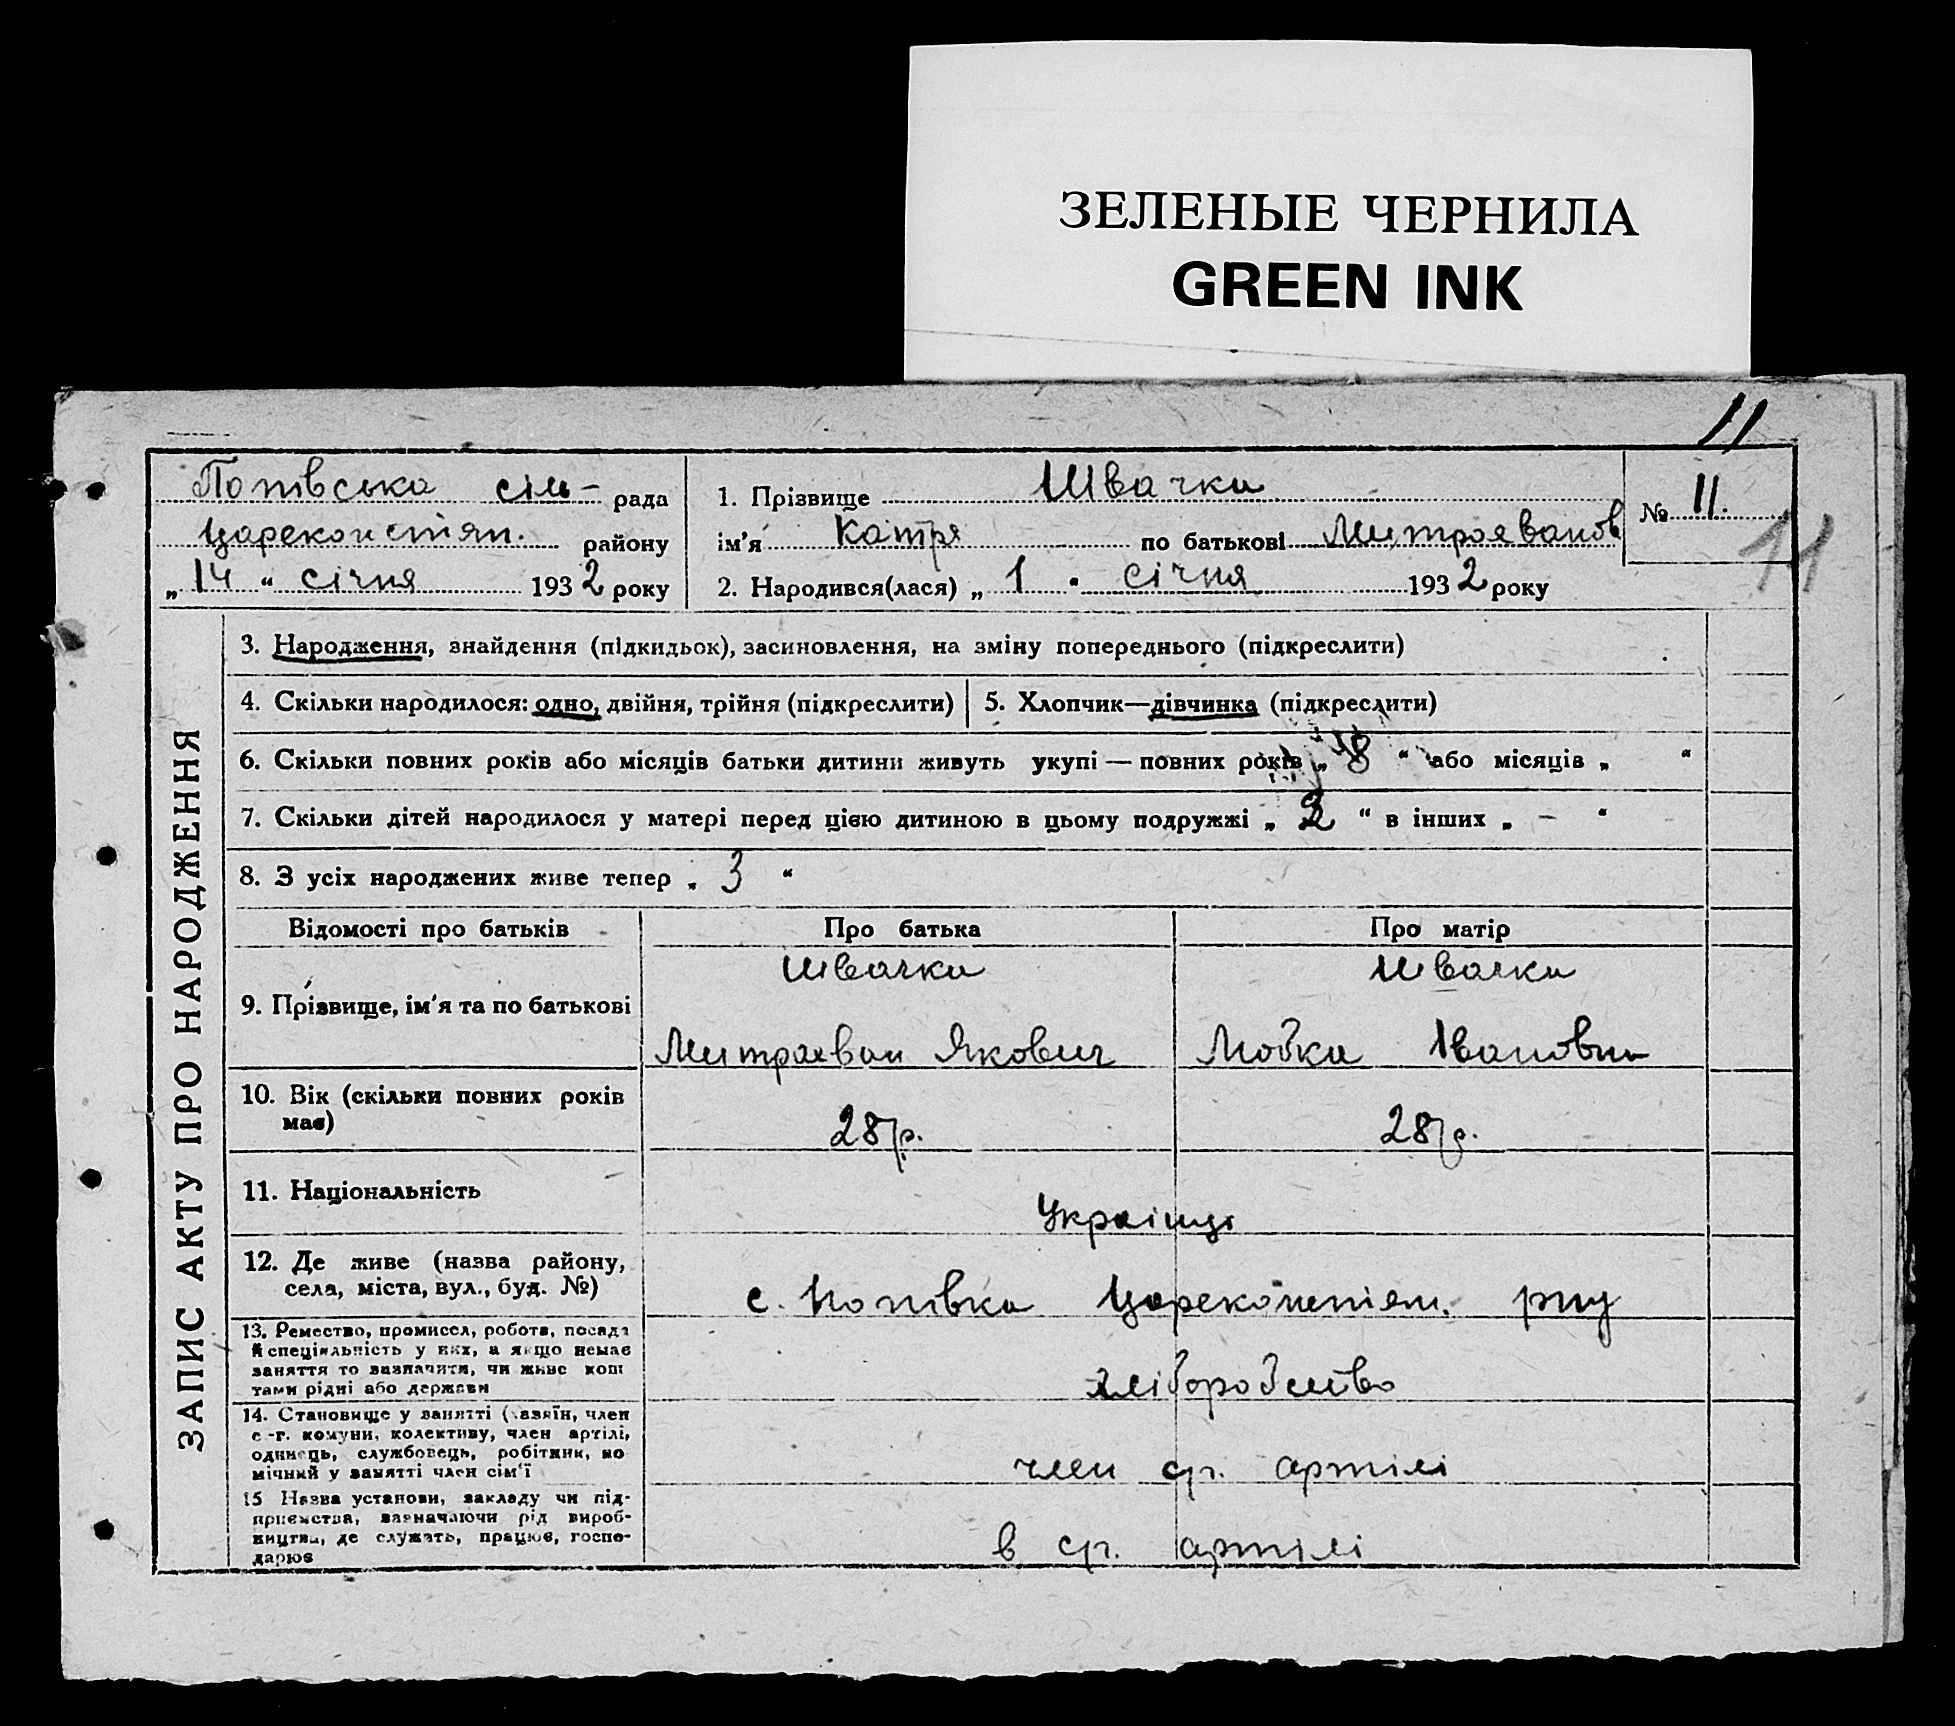 ЗЕЛЕНЫЕ ЧЕРНИЛА
GREEN INK
11
Попівська сіль- рада
Цареконстян. району
„14“ січня 1932 року
1. Прізвище Швачка
ім'я Катря по батькові Митрохванов
2. Народився(лася) „1“ січня 1932 року
№ 11.
11
ЗАПИС АКТУ ПРО НАРОДЖЕННЯ
3. Народження, знайдення (підкидьок), засиновлення, на зміну попереднього (підкреслити)
4. Скільки народилося: одно, двійня, трійня (підкреслити)
5. Хлопчик—дівчинка (підкреслити)
6. Скільки повних років або місяців батьки дитини живуть укупі — повних років „8“ або місяців „ “
7. Скільки дітей народилося у матері перед цією дитиною в цьому подружжі „2“ в інших „ – “
8. З усіх народжених живе тепер „3“
Відомості про батьків
Про батька
Про матір
9. Прізвище, ім'я та по батькові
Швачка
Митрохван Якович
Швачка
Івановна
10. Вік (скільки повних років
має)
28 р.
28 р.
11. Національність
Українці
12. Де живе (назва району,
села, міста, вул., буд. №)
с. Попівка Цареконстян. рну
13. Ремество, промисел, робота, посада
й спеціяльність у них, а якщо немає
заняття то зазначити, чи живе кош
тами рідні або держави
хліборобство
14. Становище у занятті (хазяїн, член
с.-г. комуни, колективу, член артілі,
одинець, службовець, робітник, по
мічний у занятті член сім'ї
член ср. артілі
15 Назва установи, закладу чи під-
приємства, зазначаючи рід вироб-
ництва, де служать, працює, госпо-
дарює
в ср. артілі